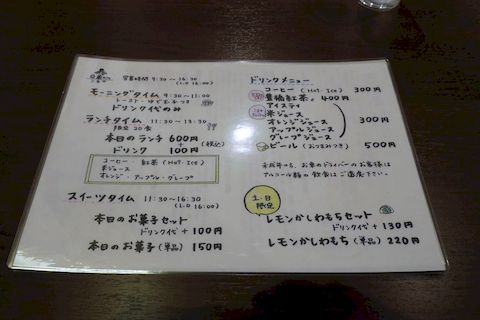 営業時間 9:30～16:30
(L.O 16:00)
モーニングタイム 9:30～11:00
トースト・ゆで玉子つき
ドリンク代のみ
ランチタイム 11:30～13:30
限定 20食
本日のランチ 600円
+ (税込)
ドリンク 100円
コーヒー・紅茶 (Hot・Ice)
米ジュース
オレンジ・アップル・グレープ
スイーツタイム 11:30～16:30
(L.O 16:00)
本日のお菓子セット
ドリンク代 + 100円
本日のお菓子(単品) 150円
ドリンクメニュー
コーヒー (Hot・Ice) 300円
豊橋紅茶 400円
アイスティ
米ジュース
オレンジジュース 300円
アップルジュース
グレープジュース
ビール (おつまみつき) 500円
未成年の方、お車のドライバーのお客様は
アルコール類の飲食はご遠慮下さい。
土・日
限定
レモンかしわもちセット
ドリンク代 + 130円
レモンかしわもち (単品) 220円